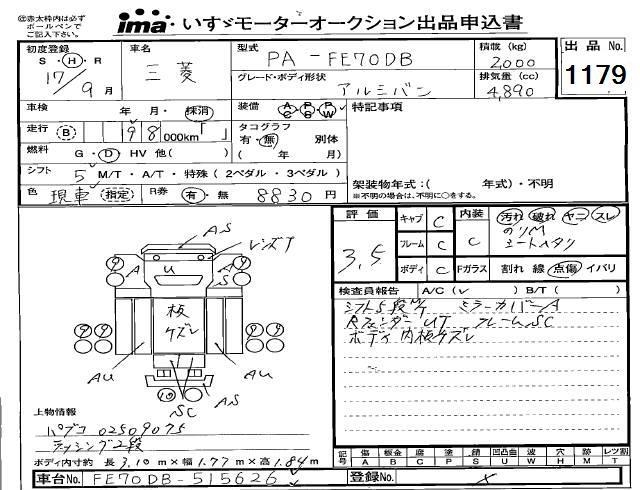 ※赤太枠内は必ず
ボールペンで
ご記入下さい。
ima いすゞモーターオークション出品申込書
初度登録
S・H・R
17/9月
車名
三菱
型式
PA-FE70DB
グレード・ボディ形状
アルミバン
積載 (kg)
2,000
排気量 (cc)
4,890
出品 No.
1179
車検
年 月・抹消
装備
A C P S P W
特記事項
走行
B 98 000km「 」
タコグラフ
有・無 別体
( 年 月)
燃料
G・D・HV 他( )
シフト
5 M/T・A/T・特殊 (2ペダル・3ペダル)
架装物年式:( 年式)・不明
※不明の場合は、不明に○をする。
色
現車 指定
R券
有・無 8830 円
評価
3.5
キャブ C
フレーム C
ボディ C
内装 C
汚れ 破れ ヤニ スレ
ノリM
シートヘタリ
Fガラス 割れ 線 点傷 イバリ
検査員報告
A/C( ) B/T( )
シフト5段M/T ミラーカバーA
RフェンダーUT フレームSC
ボディ内板ケズレ
AS
レンズT
A
U
A
S
板
ケズレ
AU
AU
SC
AS
上物情報
パブコ 02509075
ラッシング2段
ボディ内寸約 長 3.10 m × 幅 1.77 m × 高 1.84 m
記号
傷 板金 腐 塗 錆 凹凸曲 波 穴 跡 レツ割
A B C P S U W H M T
車台No.
FE70DB-515626
登録No.